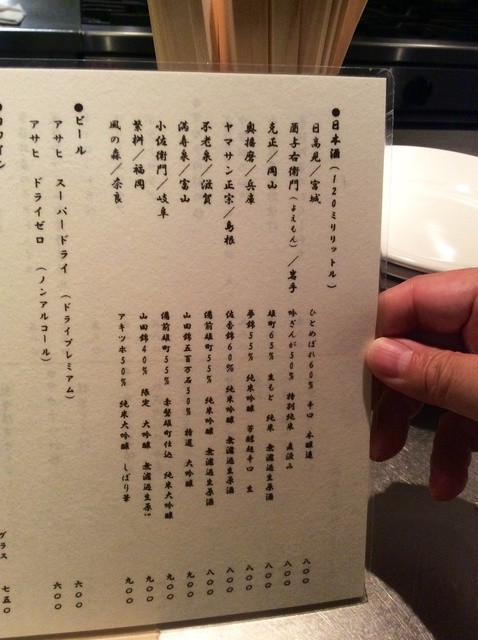 ●日本酒(120ミリリットル)
日高見/宮城 ひとめぼれ60% 辛口 本醸造 八〇〇
酉与右衛門(よえもん)/岩手 吟ぎんが50% 特別純米 直汲み 八〇〇
克正/岡山 雄町65% 生もと 純米 無濾過生原酒 八〇〇
奥播磨/兵庫 夢錦55% 純米吟醸 芳醇超辛口 生 八〇〇
ヤマサン正宗/島根 佐香錦60% 純米吟醸 無濾過生原酒 八〇〇
不老泉/滋賀 備前雄町55% 純米吟醸 無濾過生原酒 八〇〇
満寿泉/富山 山田錦五百万石50% 特選 大吟醸 九〇〇
小左衛門/岐阜 備前雄町55% 赤磐雄町仕込 純米大吟醸 九〇〇
繁桝/福岡 山田錦40% 限定 大吟醸 無濾過生原酒 九〇〇
風の森/奈良 アキツホ50% 純米大吟醸 しぼり華 九〇〇
●ビール
アサヒ スーパードライ (ドライプレミアム) 六〇〇
アサヒ ドライゼロ (ノンアルコール) 六〇〇
グラス 七五〇